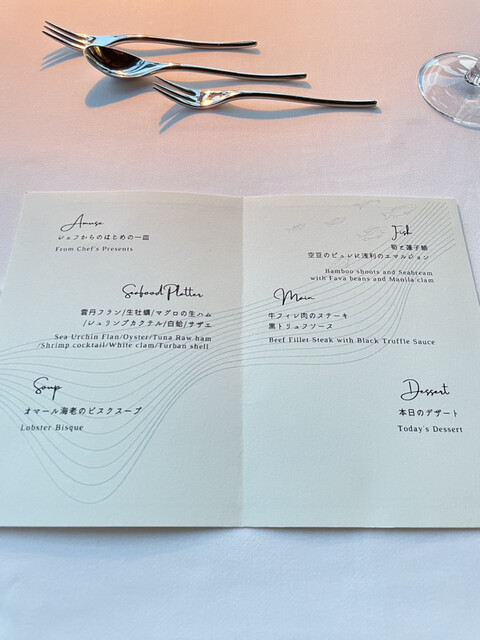 Amuse
シェフからのはじめの一皿
From Chef's Presents
Seafood Platter
雲丹フラン/生牡蠣/マグロの生ハム
/シュリンプカクテル/白蛤/サザエ
Sea Urchin Flan/Oyster/Tuna Raw ham
/Shrimp cocktail/White clam/Turban shell
Soup
オマール海老のビスクスープ
Lobster Bisque
Fish
筍と蓮子鯛
空豆のピュレに浅利のエマルジョン
Bamboo shoots and Seabream
with Fava beans and Manila clam
Main
牛フィレ肉のステーキ
黒トリュフソース
Beef Fillet Steak with Black Truffle Sauce
Dessert
本日のデザート
Today's Dessert